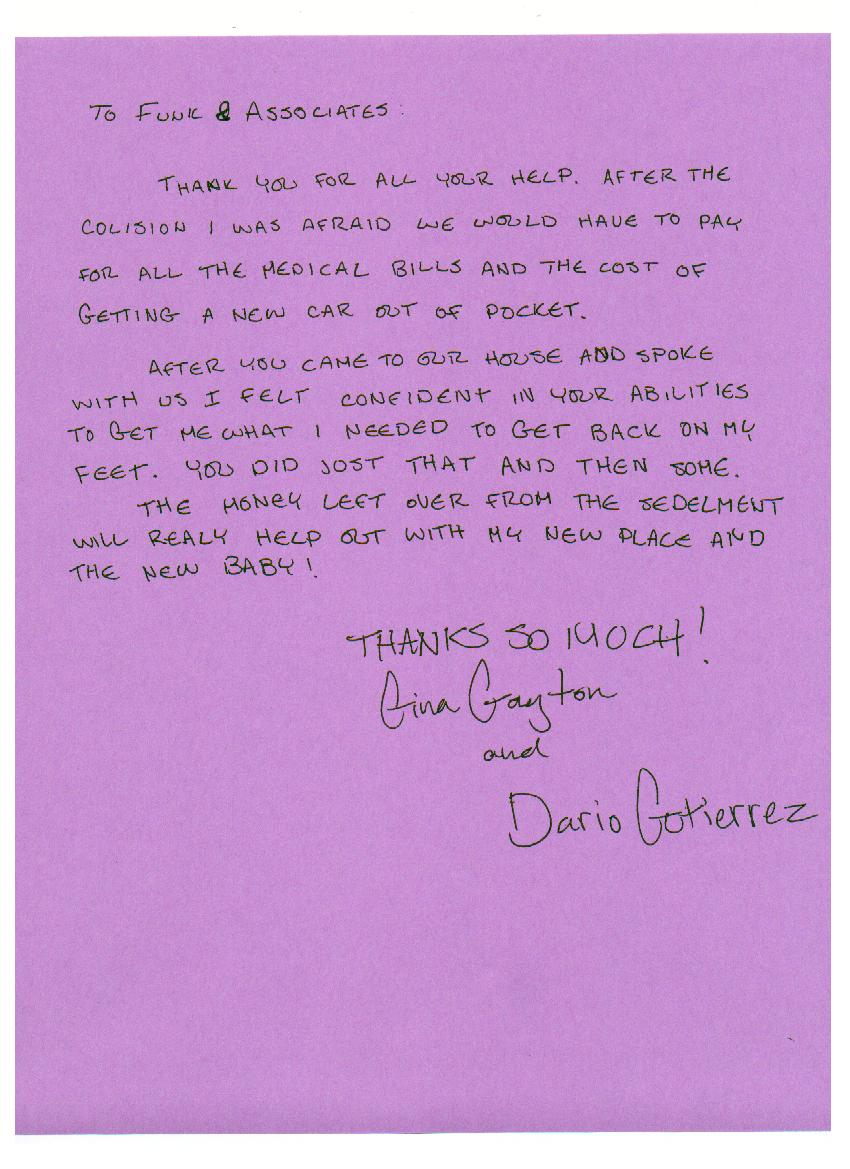 TO FUNK & ASSOCIATES:
THANK YOU FOR ALL YOUR HELP. AFTER THE
COLISION I WAS AFRAID WE WOULD HAVE TO PAY
FOR ALL THE MEDICAL BILLS AND THE COST OF
GETTING A NEW CAR OUT OF POCKET.
AFTER YOU CAME TO OUR HOUSE AND SPOKE
WITH US I FELT CONFIDENT IN YOUR ABILITIES
TO GET ME WHAT I NEEDED TO GET BACK ON MY
FEET. YOU DID JUST THAT AND THEN SOME.
THE MONEY LEFT OVER FROM THE SEDELMENT
WILL REALY HELP OUT WITH MY NEW PLACE AND
THE NEW BABY!
THANKS SO MUCH!
Gina Gayton
and
Dario Gutierrez